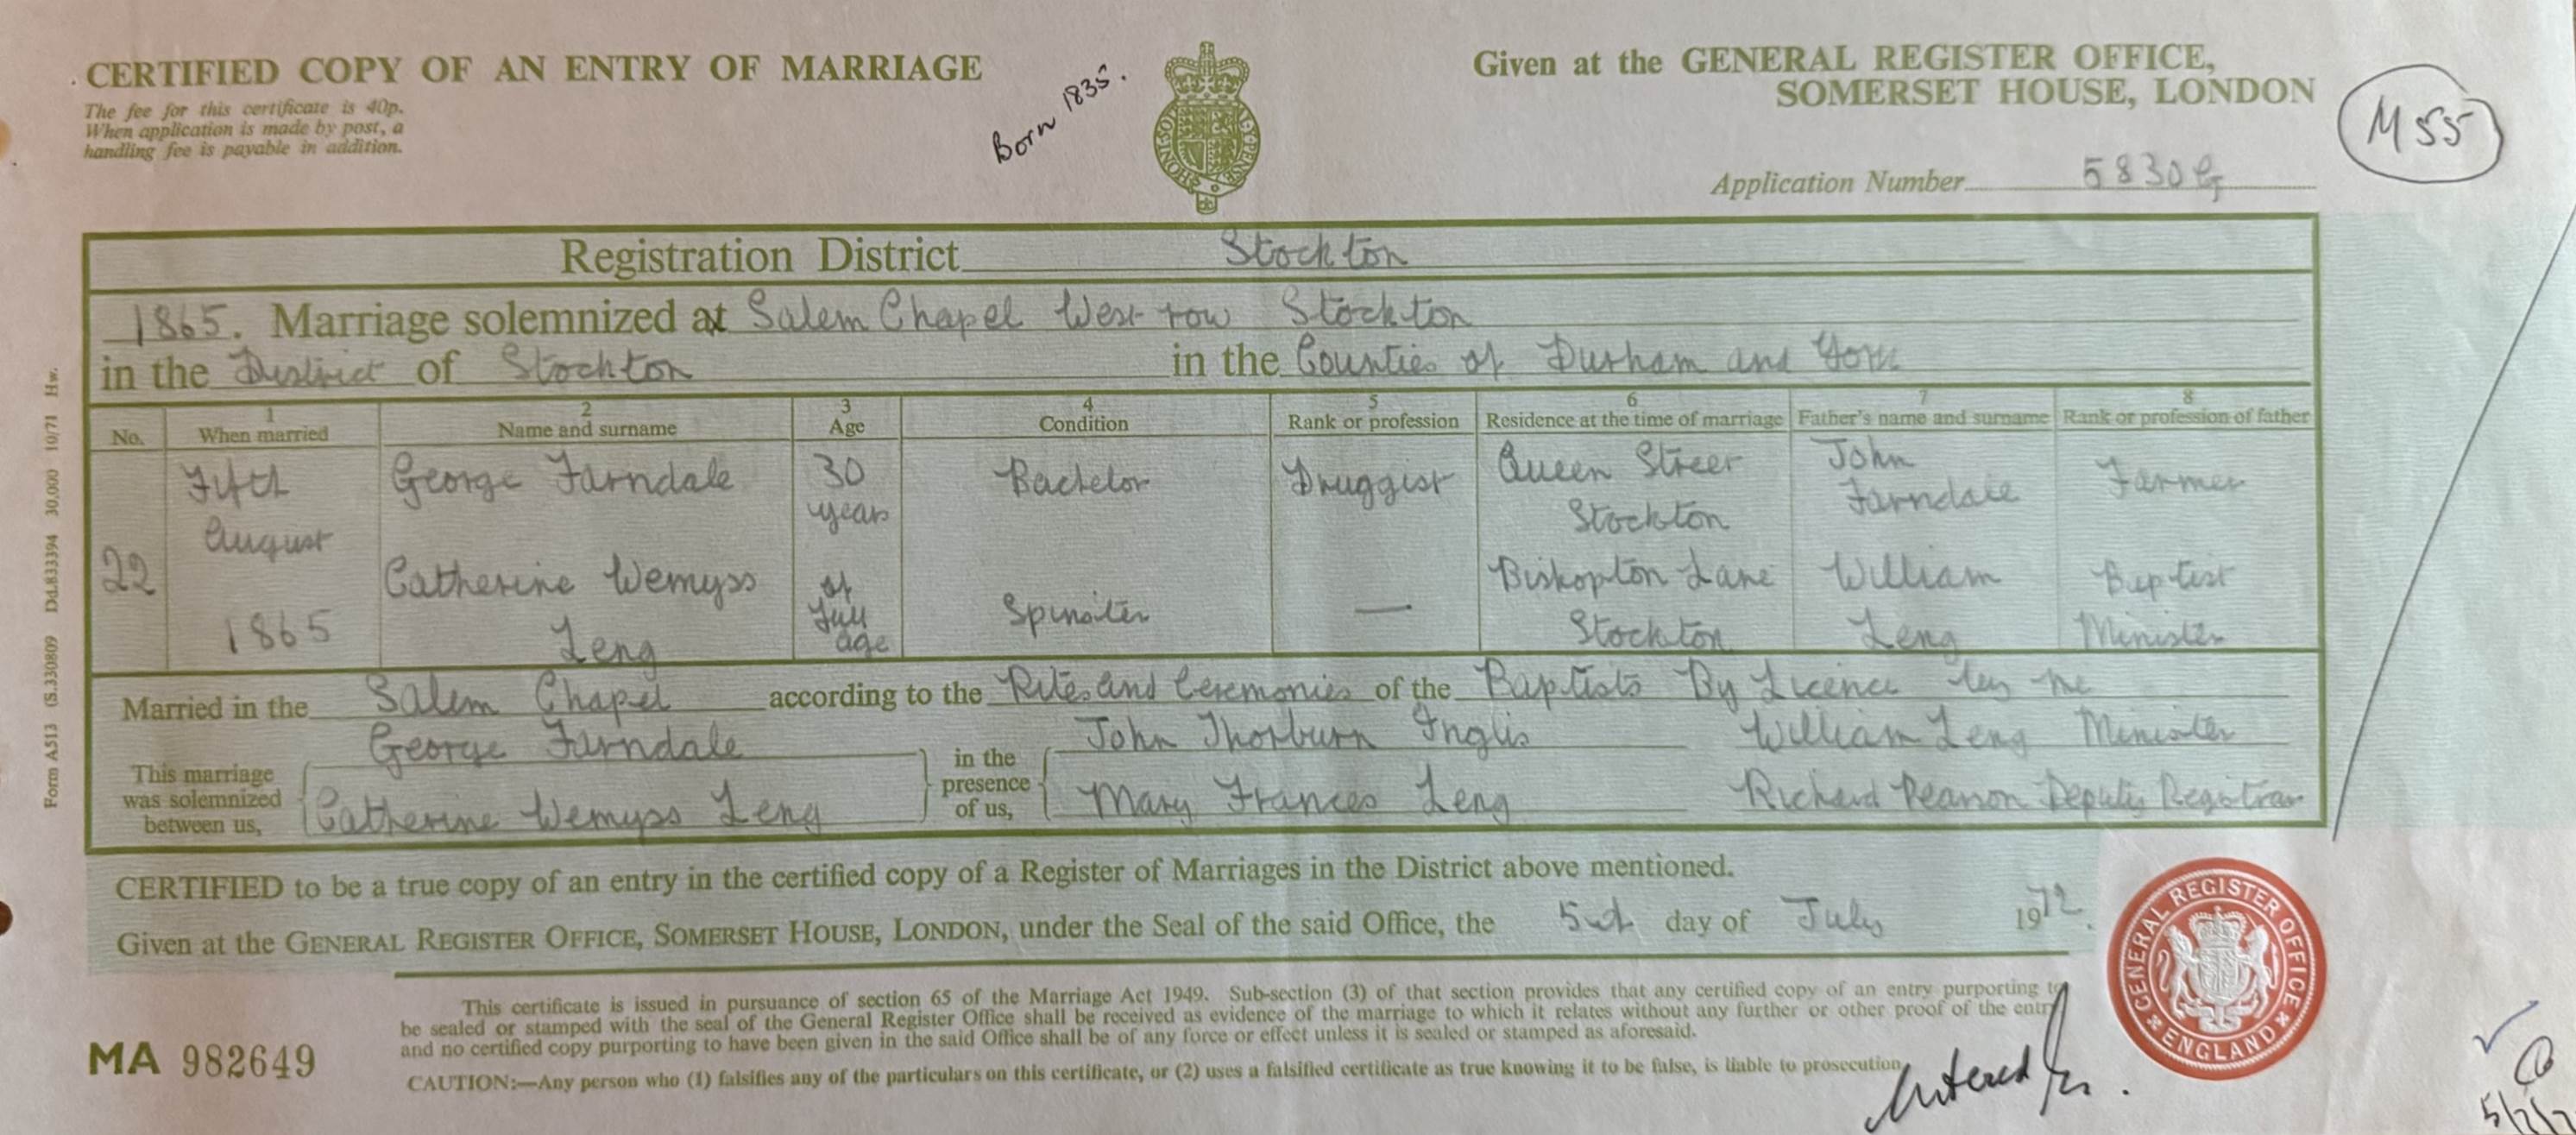 CERTIFIED COPY OF AN ENTRY OF MARRIAGE
The fee for this certificate is 40p.
When application is made by post, a
handling fee is payable in addition.
Born 1835.
Given at the GENERAL REGISTER OFFICE,
SOMERSET HOUSE, LONDON
M55
Application Number 5830G
Registration District Stockton
1865. Marriage solemnized at Salem Chapel West row Stockton
in the District of Stockton in the Counties of Durham and York
No. 1 When married 2 Name and surname 3 Age 4 Condition 5 Rank or profession 6 Residence at the time of marriage 7 Father's name and surname 8 Rank or profession of father
22
Fifth
August
1865
George Farndale
30
years
Bachelor
Druggist
Queen Street
Stockton
John
Farndale
Farmer
Catherine Wemyss
Leng
of
full
age
Spinster
—
Bishopton Lane
Stockton
William
Leng
Baptist
Minister
Married in the Salem Chapel according to the Rites and Ceremonies of the Baptists By Licence by me
This marriage
was solemnized
between us,
George Farndale
Catherine Wemyss Leng
in the
presence
of us,
John Thorburn Inglis
Mary Frances Leng
William Leng Minister
Richard Pearson Deputy Registrar
CERTIFIED to be a true copy of an entry in the certified copy of a Register of Marriages in the District above mentioned.
Given at the GENERAL REGISTER OFFICE, SOMERSET HOUSE, LONDON, under the Seal of the said Office, the 5th day of July 1972.
This certificate is issued in pursuance of section 65 of the Marriage Act 1949. Sub-section (3) of that section provides that any certified copy of an entry purporting to
be sealed or stamped with the seal of the General Register Office shall be received as evidence of the marriage to which it relates without any further or other proof of the entry
and no certified copy purporting to have been given in the said Office shall be of any force or effect unless it is sealed or stamped as aforesaid.
CAUTION:—Any person who (1) falsifies any of the particulars on this certificate, or (2) uses a falsified certificate as true knowing it to be false, is liable to prosecution.
MA 982649
GENERAL REGISTER OFFICE
ENGLAND
Form A513 (S.330809 Dd.833394 30,000 10/71 Hw.